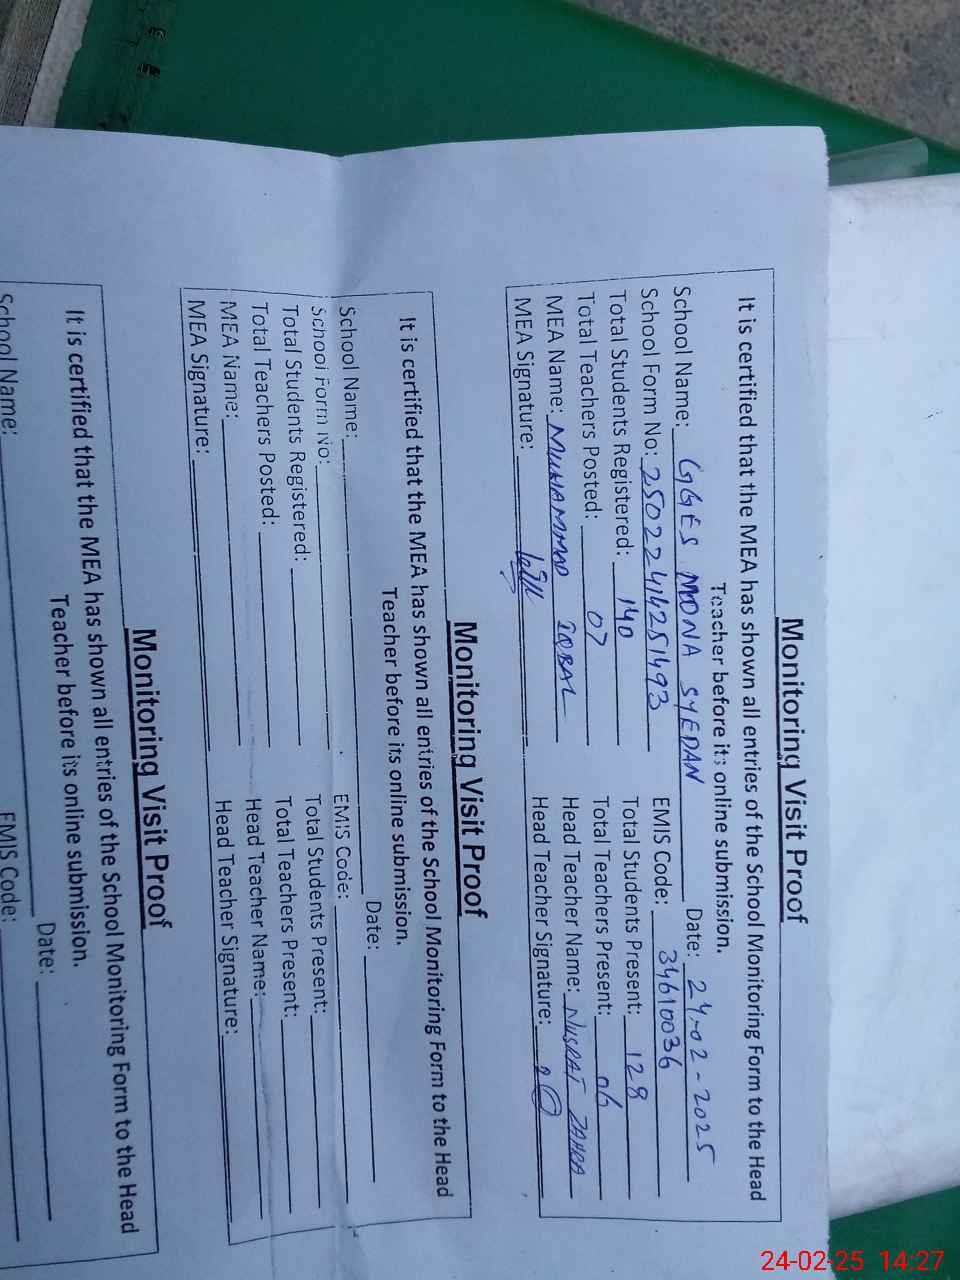 Monitoring Visit Proof
It is certified that the MEA has shown all entries of the School Monitoring Form to the Head
Teacher before its online submission.
School Name: GGES MONA SYEDAN Date: 24-02-2025
School Form No: 25022414251493 EMIS Code: 34610036
Total Students Registered: 140 Total Students Present: 128
Total Teachers Posted: 07 Total Teachers Present: 06
MEA Name: MUHAMMAD IQBAL Head Teacher Name: NUSRAT ZAHRA
MEA Signature: Head Teacher Signature:
Monitoring Visit Proof
It is certified that the MEA has shown all entries of the School Monitoring Form to the Head
Teacher before its online submission.
School Name: Date:
School Form No: EMIS Code:
Total Students Registered: Total Students Present:
Total Teachers Posted: Total Teachers Present:
MEA Name: Head Teacher Name:
MEA Signature: Head Teacher Signature:
Monitoring Visit Proof
It is certified that the MEA has shown all entries of the School Monitoring Form to the Head
Teacher before its online submission.
School Name: Date:
EMIS Code:
24-02-25 14:27